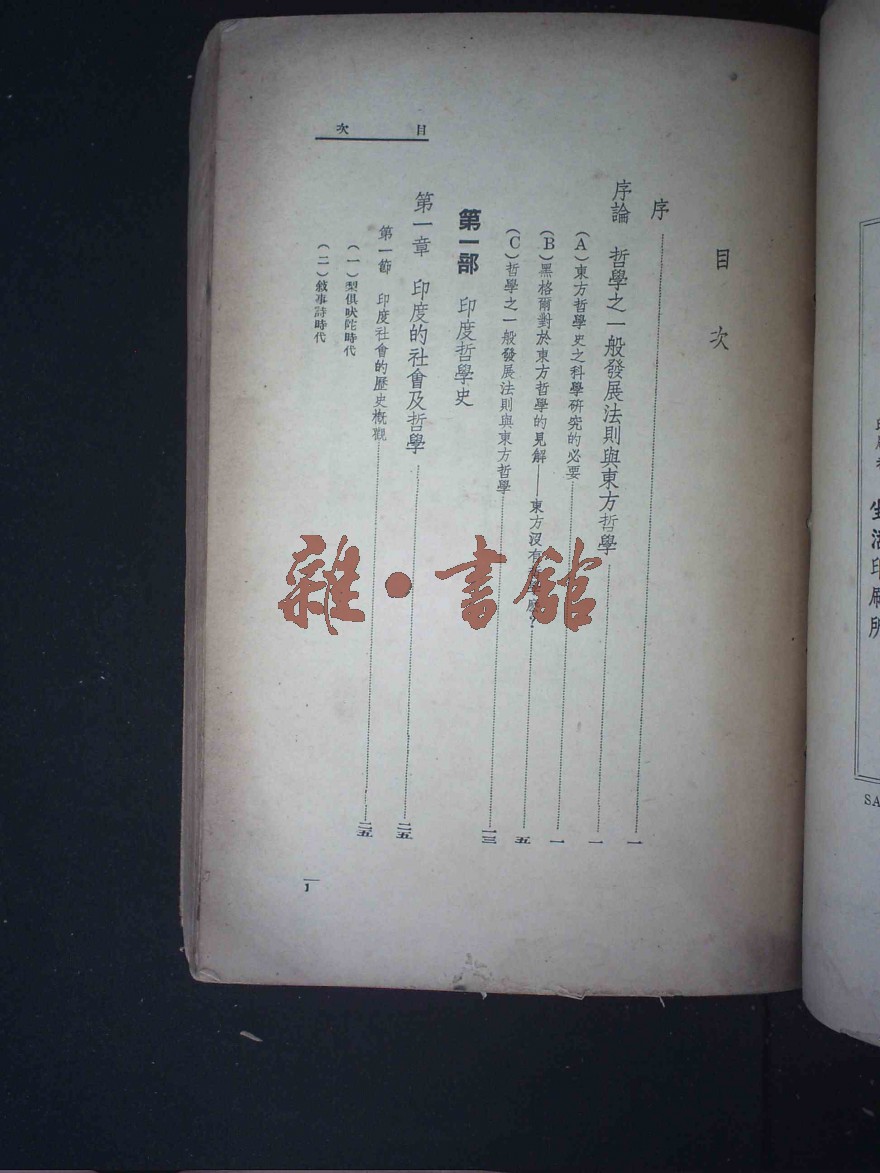 生活印刷所
SA
目次
目次
序……一
序論 哲學之一般發展法則與東方哲學……一
（A）東方哲學史之科學研究的必要……一
（B）黑格爾對於東方哲學的見解——東方沒有哲學麼？……五
（C）哲學之一般發展法則與東方哲學……一三
第一部 印度哲學史
第一章 印度的社會及哲學……二五
第一節 印度社會的歷史概觀……二五
（一）梨俱吠陀時代
（二）敘事詩時代
1
雜·書館